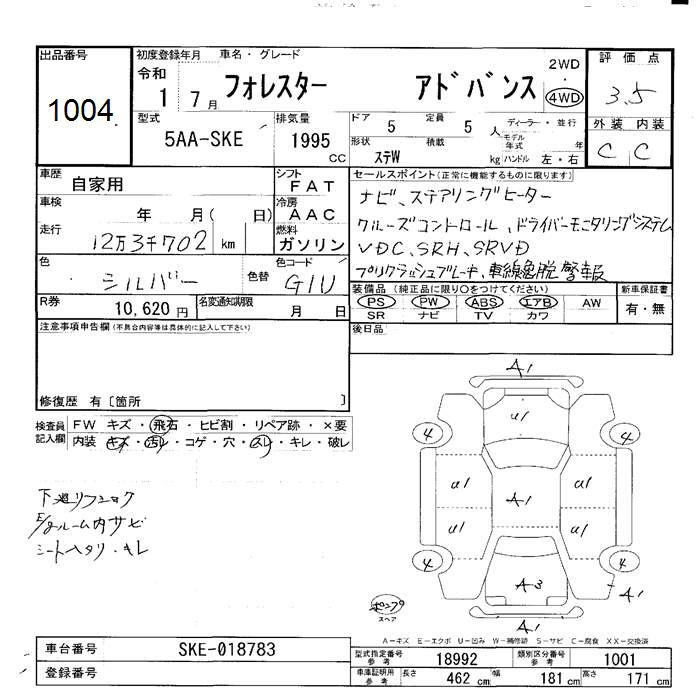 出品番号
1004
初度登録年月 車名・グレード
令和
1 7月 フォレスター アドバンス
2WD
・
4WD
評価点
3.5
型式
5AA-SKE
排気量
1995
CC
ドア
5
定員
5
人
形状
ステW
積載
kg
ディーラー・並行
モデル
年式
年
ハンドル 左・右
外装 内装
C C
車歴
自家用
シフト
FAT
車検
年 月( 日)
冷房
AAC
走行
12万3千702 km
燃料
ガソリン
色
シルバー
色替
色コード
G1U
R券
10,620円
名変通知期限
月 日
セールスポイント(正常に機能するものに限ります)
ナビ、ステアリングヒーター
クルーズコントロール、ドライバーモニタリングシステム
VDC、SRH、SRVD
プリクラッシュブレーキ、車線逸脱警報
装備品(純正品に限り〇をつけてください)
新車保証書
PS PW ABS エアB AW
有・無
SR ナビ TV カワ
後日品
注意事項申告欄(不具合内容等は具体的に記入して下さい)
修復歴 有〔箇所 〕
検査員
記入欄
FW キズ・飛石・ヒビ割・リペア跡・×要
内装 キズ・汚レ・コゲ・穴・スレ・キレ・破レ
下廻リフショク
E/gルーム内サビ
シートヘタリ・キレ
A1
U1
4
4
U1
A1
U1
U1
U1
4
4
A3
A1
A1
ポンプ
スペア
A-キズ E-エクボ U-凹み W-補修跡 S-サビ C-腐食 XX-交換済
車台番号
SKE-018783
登録番号
型式指定番号
参考
18992
類別区分番号
参考
1001
車庫証明用
参考
長さ
462 cm
幅
181 cm
高さ
171 cm